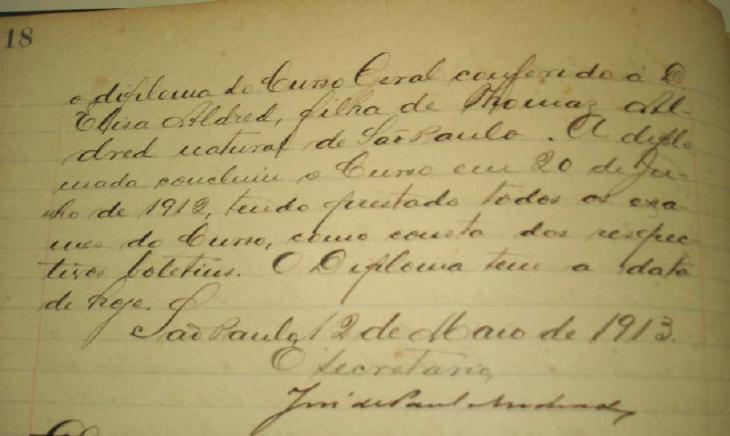 18
o diploma do Curso Geral conferido á D.
Elisa Aldred, filha de Thomaz Al-
dred natural de São Paulo. A diplo
mada concluiu o Curso em 20 de Ju-
nho de 1912, tendo prestado todos os exa-
mes do Curso, como consta dos respec-
tivos boletins. O Diploma tem a data
de hoje.
São Paulo, 12 de Maio de 1913.
O secretario,
José de Paula Andrade